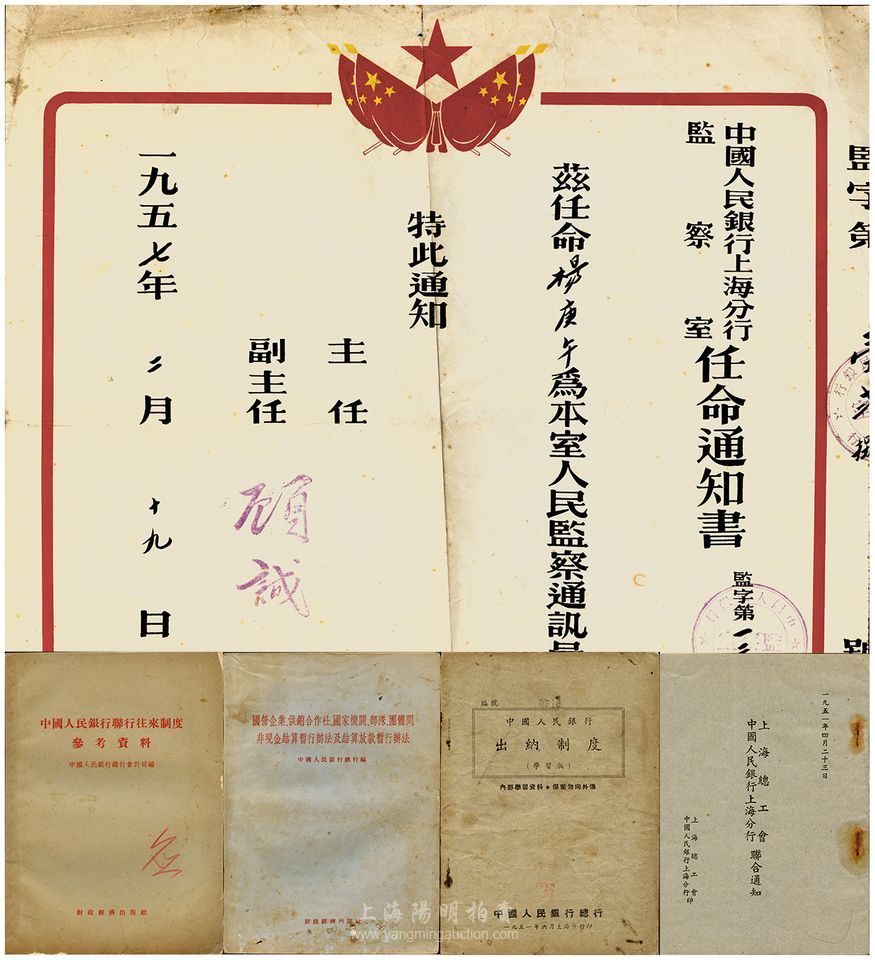 監字第
中國人民銀行上海分行
監察室
任命通知書
監字第一二
茲任命楊庚午爲本室人民監察通訊員
特此通知
主任
副主任
顧誠
一九五七年二月十九日
中國人民銀行聯行往來制度
參考資料
中國人民銀行總行會計局編
財政經濟出版社
國營企業、供銷合作社、國家機關、部隊、團體間
非現金結算暫行辦法及結算放款暫行辦法
中國人民銀行總行編
財政經濟出版社
編號
中國人民銀行
出納制度
(學習版)
內部學習資料★保密勿向外傳
中國人民銀行總行
一九五一年六月上海分行印
一九五一年四月二十三日
上海總工會
中國人民銀行上海分行
聯合通知
上海總工會
中國人民銀行上海分行
印
上海陽明拍賣
www.yangmingauction.com